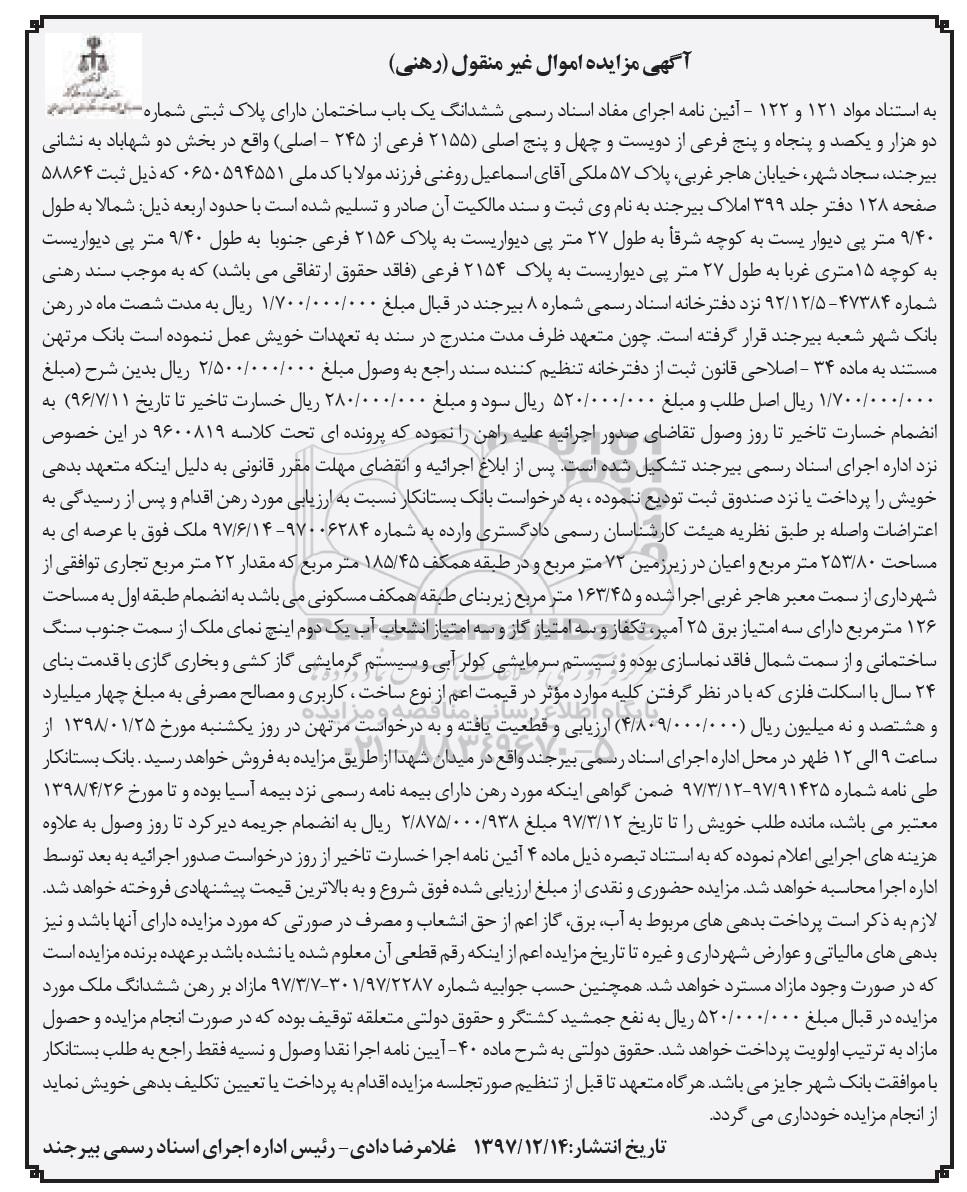 آگهی مزایده اموال غیر منقول (رهنی)
به استناد مواد ۱۲۱ و ۱۲۲ - آئین نامه اجرای مفاد اسناد رسمی ششدانگ یک باب ساختمان دارای پلاک ثبتی شماره
دو هزار و یکصد و پنجاه و پنج فرعی از دویست و چهل و پنج اصلی (۲۱۵۵ فرعی از ۲۴۵ - اصلی) واقع در بخش دو شهاباد به نشانی
بیرجند، سجاد شهر، خیابان هاجر غربی، پلاک ۵۷ ملکی آقای اسماعیل روغنی فرزند مولا با کد ملی ۰۶۵۰۵۹۴۵۵۱ که ذیل ثبت ۵۸۸۶۴
صفحه ۱۲۸ دفتر جلد ۳۹۹ املاک بیرجند به نام وی ثبت و سند مالکیت آن صادر و تسلیم شده است با حدود اربعه ذیل: شمالا به طول
۹/۴۰ متر پی دیوار یست به کوچه شرقأ به طول ۲۷ متر پی دیواریست به پلاک ۲۱۵۶ فرعی جنوبا به طول ۹/۴۰ متر پی دیواریست
به کوچه ۱۵متری غربا به طول ۲۷ متر پی دیواریست به پلاک ۲۱۵۴ فرعی (فاقد حقوق ارتفاقی می باشد) که به موجب سند رهنی
شماره ۴۷۳۸۴- ۹۲/۱۲/۵ نزد دفترخانه اسناد رسمی شماره ۸ بیرجند در قبال مبلغ ۱/۷۰۰/۰۰۰/۰۰۰ ریال به مدت شصت ماه در رهن
بانک شهر شعبه بیرجند قرار گرفته است. چون متعهد ظرف مدت مندرج در سند به تعهدات خویش عمل ننموده است بانک مرتهن
مستند به ماده ۳۴ - اصلاحی قانون ثبت از دفترخانه تنظیم کننده سند راجع به وصول مبلغ ۲/۵۰۰/۰۰۰/۰۰۰ ریال بدین شرح (مبلغ
۱/۷۰۰/۰۰۰/۰۰۰ ریال اصل طلب و مبلغ ۵۲۰/۰۰۰/۰۰۰ ریال سود و مبلغ ۲۸۰/۰۰۰/۰۰۰ ریال خسارت تاخیر تا تاریخ ۹۶/۷/۱۱) به
انضمام خسارت تاخیر تا روز وصول تقاضای صدور اجرائیه علیه راهن را نموده که پرونده ای تحت کلاسه ۹۶۰۰۸۱۹ در این خصوص
نزد اداره اجرای اسناد رسمی بیرجند تشکیل شده است. پس از ابلاغ اجرائیه و انقضای مهلت مقرر قانونی به دلیل اینکه متعهد بدهی
خویش را پرداخت یا نزد صندوق ثبت تودیع ننموده ، به درخواست بانک بستانکار نسبت به ارزیابی مورد رهن اقدام و پس از رسیدگی به
اعتراضات واصله بر طبق نظریه هیئت کارشناسان رسمی دادگستری وارده به شماره ۹۷۰۰۶۲۸۴- ۹۷/۶/۱۴ ملک فوق با عرصه ای به
مساحت ۲۵۳/۸۰ متر مربع و اعیان در زیرزمین ۷۲ متر مربع و در طبقه همکف ۱۸۵/۴۵ متر مربع که مقدار ۲۲ متر مربع تجاری توافقی از
شهرداری از سمت معبر هاجر غربی اجرا شده و ۱۶۳/۴۵ متر مربع زیربنای طبقه همکف مسکونی می باشد به انضمام طبقه اول به مساحت
۱۲۶ مترمربع دارای سه امتیاز برق ۲۵ آمپر، تکفاز و سه امتیاز گاز و سه امتیاز انشعاب آب یک دوم اینچ نمای ملک از سمت جنوب سنگ
ساختمانی و از سمت شمال فاقد نماسازی بوده و سیستم سرمایشی کولر آبی و سیستم گرمایشی گاز کشی و بخاری گازی با قدمت بنای
۲۴ سال با اسکلت فلزی که با در نظر گرفتن کلیه موارد مؤثر در قیمت اعم از نوع ساخت ، کاربری و مصالح مصرفی به مبلغ چهار میلیارد
و هشتصد و نه میلیون ریال (۴/۸۰۹/۰۰۰/۰۰۰) ارزیابی و قطعیت یافته و به درخواست مرتهن در روز یکشنبه مورخ ۱۳۹۸/۰۱/۲۵ از
ساعت ۹ الی ۱۲ ظهر در محل اداره اجرای اسناد رسمی بیرجند واقع در میدان شهدا از طریق مزایده به فروش خواهد رسید . بانک بستانکار
طی نامه شماره ۹۷/۹۱۴۲۵-۹۷/۳/۱۲ ضمن گواهی اینکه مورد رهن دارای بیمه نامه رسمی نزد بیمه آسیا بوده و تا مورخ ۱۳۹۸/۴/۲۶
معتبر می باشد، مانده طلب خویش را تا تاریخ ۹۷/۳/۱۲ مبلغ ۲/۸۷۵/۰۰۰/۹۳۸ ریال به انضمام جریمه دیرکرد تا روز وصول به علاوه
هزینه های اجرایی اعلام نموده که به استناد تبصره ذیل ماده ۴ آئین نامه اجرا خسارت تاخیر از روز درخواست صدور اجرائیه به بعد توسط
اداره اجرا محاسبه خواهد شد. مزایده حضوری و نقدی از مبلغ ارزیابی شده فوق شروع و به بالاترین قیمت پیشنهادی فروخته خواهد شد.
لازم به ذکر است پرداخت بدهی های مربوط به آب، برق، گاز اعم از حق انشعاب و مصرف در صورتی که مورد مزایده دارای آنها باشد و نیز
بدهی های مالیاتی و عوارض شهرداری و غیره تا تاریخ مزایده اعم از اینکه رقم قطعی آن معلوم شده یا نشده باشد برعهده برنده مزایده است
که در صورت وجود مازاد مسترد خواهد شد. همچنین حسب جوابیه شماره ۳۰۱/۹۷/۲۲۸۷-۹۷/۳/۷ مازاد بر رهن ششدانگ ملک مورد
مزایده در قبال مبلغ ۵۲۰/۰۰۰/۰۰۰ ریال به نفع جمشید کشتگر و حقوق دولتی متعلقه توقیف بوده که در صورت انجام مزایده و حصول
مازاد به ترتیب اولویت پرداخت خواهد شد. حقوق دولتی به شرح ماده ۴۰- آیین نامه اجرا نقدا وصول و نسیه فقط راجع به طلب بستانکار
با موافقت بانک شهر جایز می باشد. هرگاه متعهد تا قبل از تنظیم صورتجلسه مزایده اقدام به پرداخت یا تعیین تکلیف بدهی خویش نماید
از انجام مزایده خودداری می گردد.
تاریخ انتشار:۱۳۹۷/۱۲/۱۴ غلامرضا دادی- رئیس اداره اجرای اسناد رسمی بیرجند
ParsNamadData
پایگاه اطلاع رسانی مناقصه و مزایده
۰۲۱-۸۸۳۴۹۶۷۰-۵